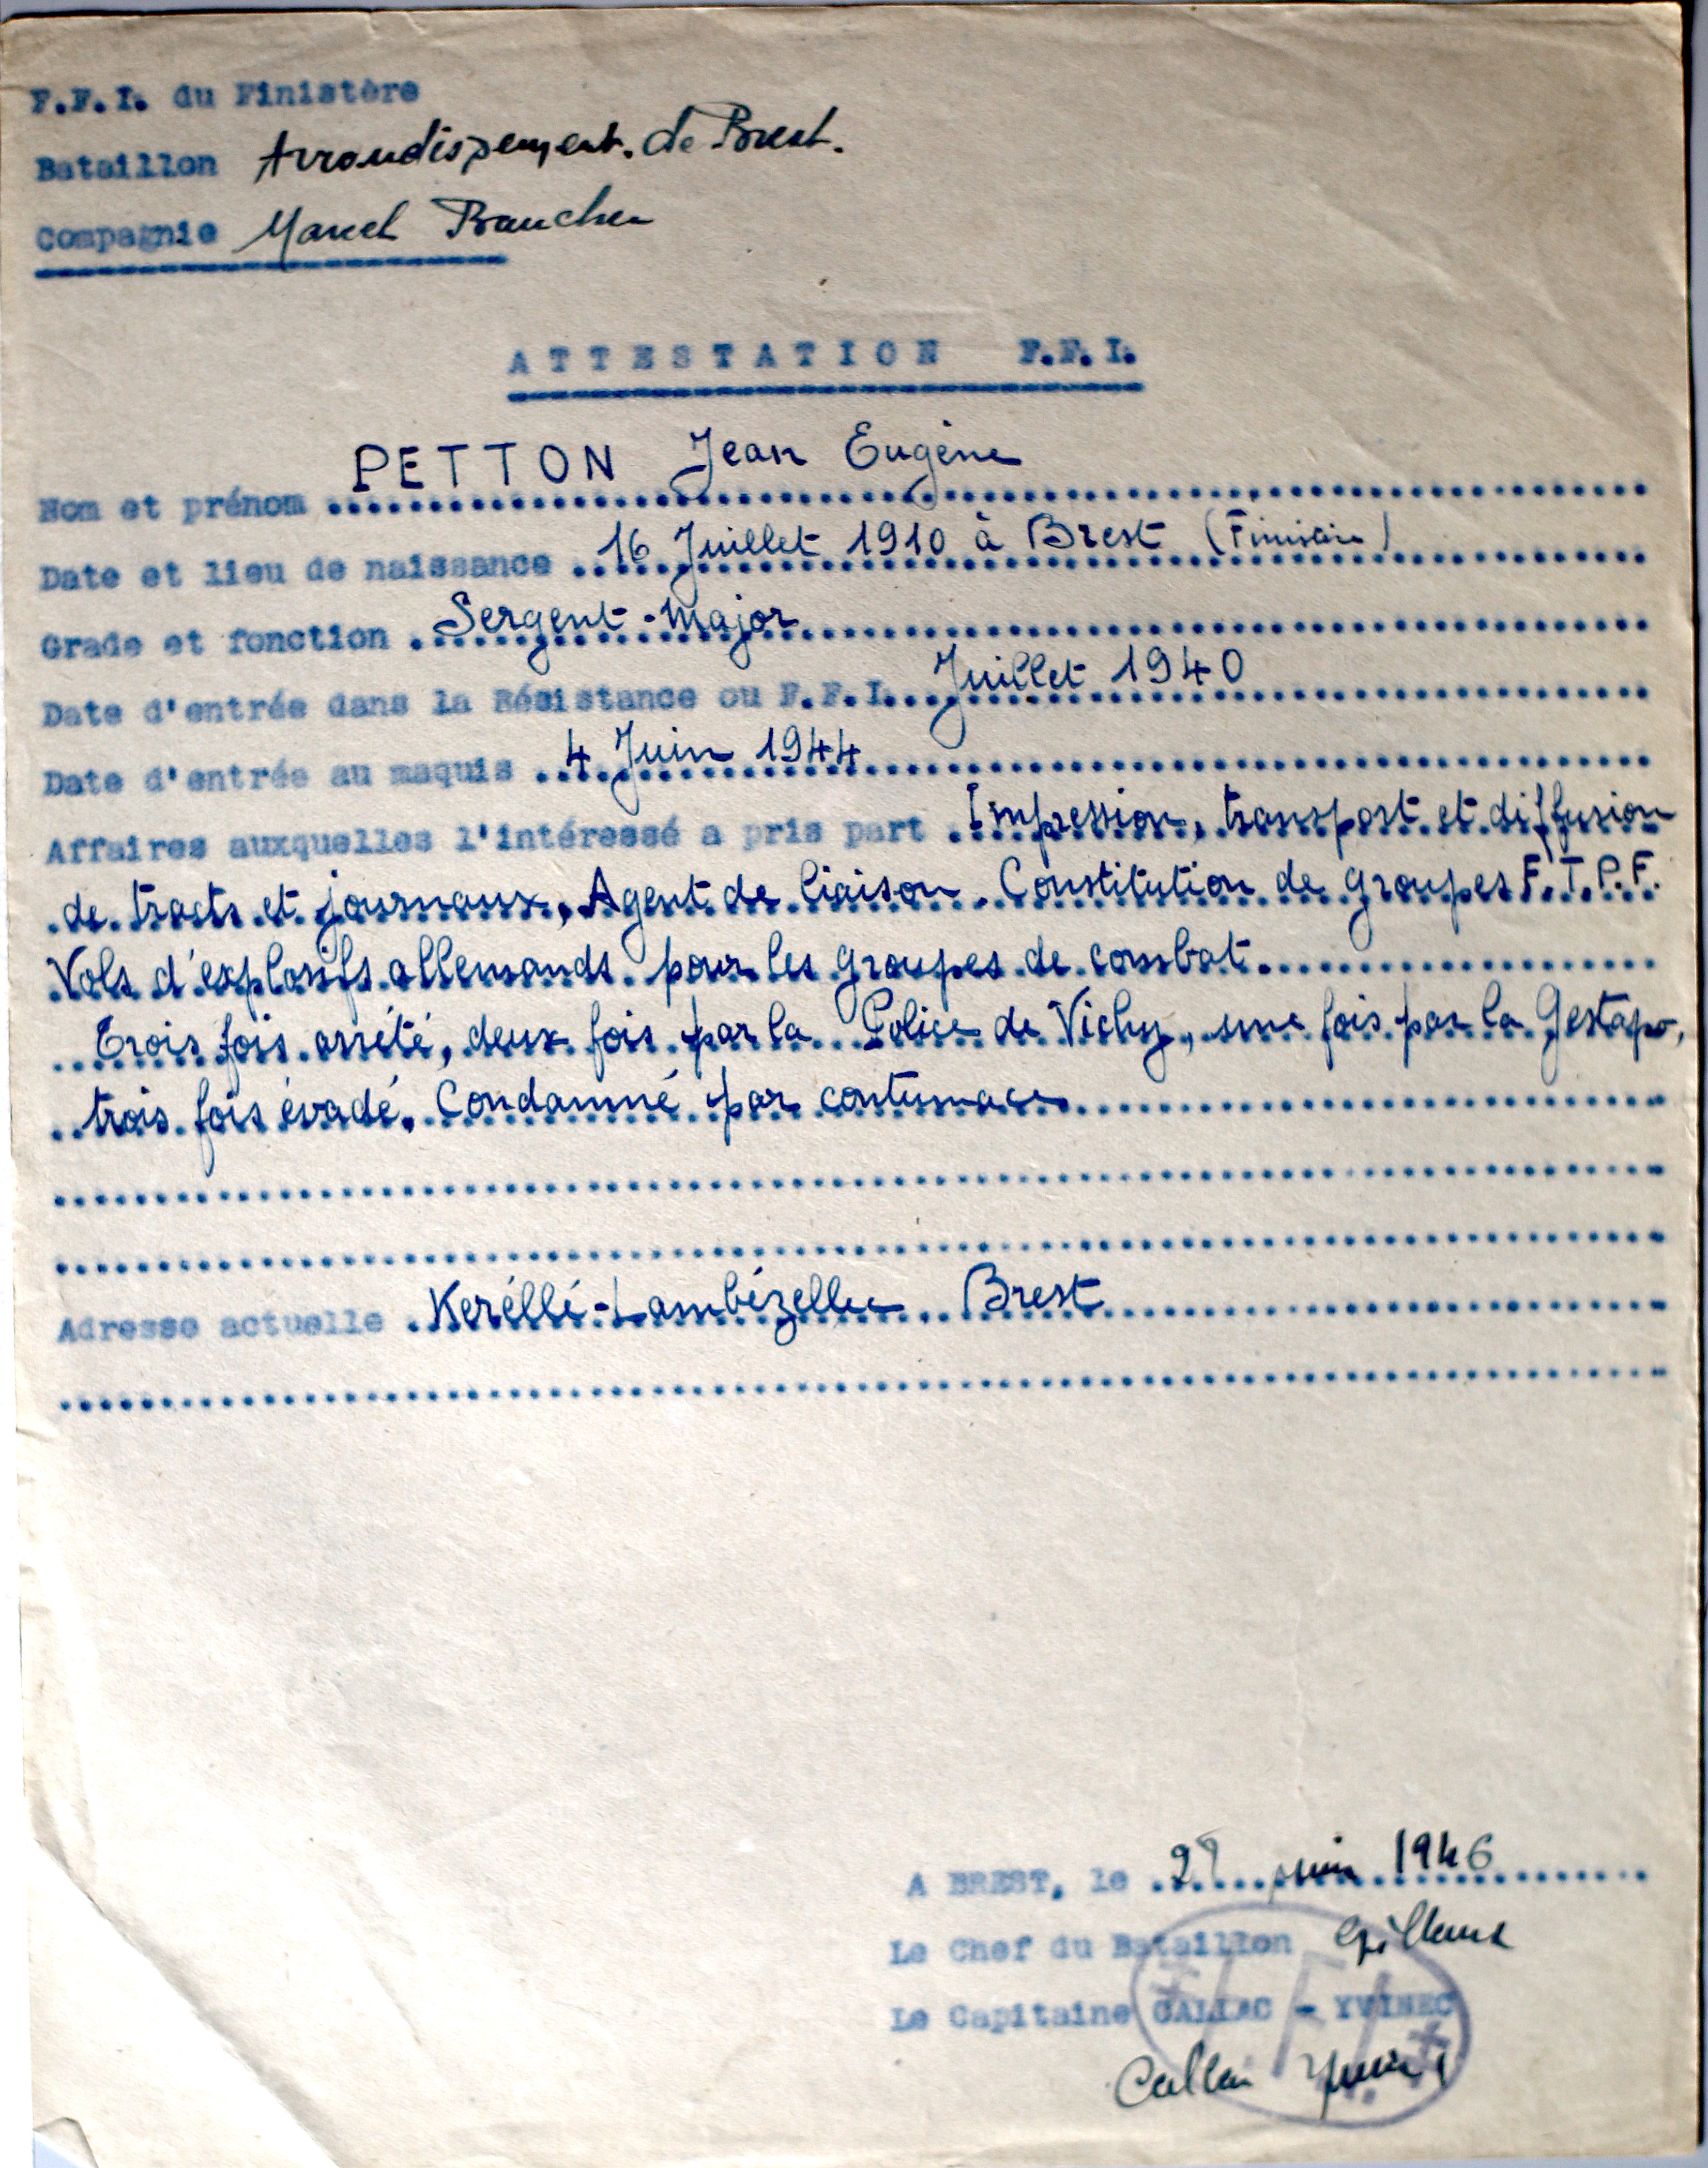 F.F.I. du Finistère
Bataillon Arrondissement de Brest.
Compagnie Marcel Boucher
ATTESTATION F.F.I.
Nom et prénom PETTON Jean Eugène
Date et lieu de naissance 16 Juillet 1910 à Brest (Finistère)
Grade et fonction Sergent-Major
Date d'entrée dans la Résistance ou F.F.I. Juillet 1940
Date d'entrée au maquis 4 Juin 1944
Affaires auxquelles l'intéressé a pris part Impression, transport et diffusion
de tracts et journaux, Agent de liaison. Constitution de groupes F.T.P.F.
Vols d'explosifs allemands pour les groupes de combat.
Trois fois arrêté, deux fois par la Police de Vichy, une fois par la Gestapo,
trois fois évadé. Condamné par contumace
Adresse actuelle Keréllé-Lambézellec Brest
A BREST, le juin 1946
Le Chef du Bataillon
Le Capitaine CALLAC - YVINEC
F.F.I.